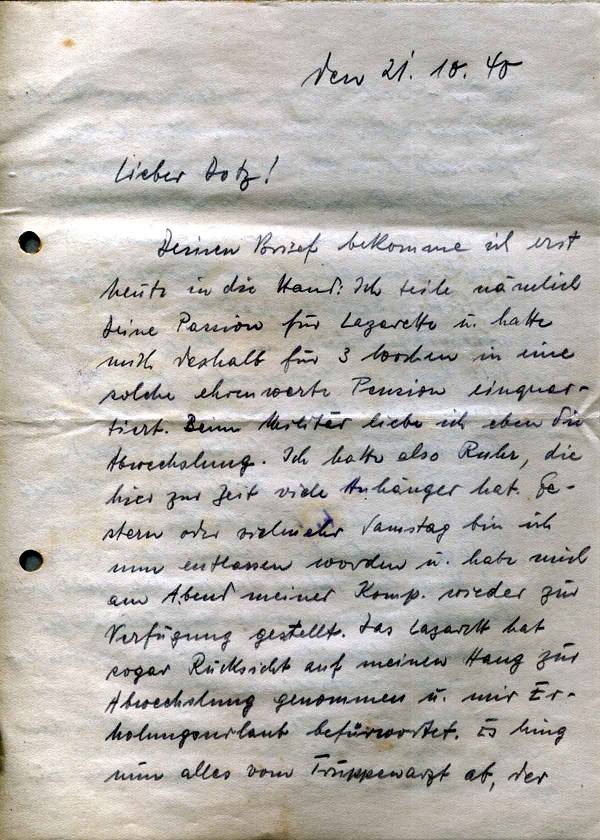 den 21. 10. 40
Lieber Dotz!
Deinen Brief bekomme ich erst
heute in die Hand. Ich teile nämlich
Deine Passion für Lazarette u. hatte
mich deshalb für 3 Wochen in eine
solche ehrenwerte Pension einquar-
tiert. Beim Militär liebe ich eben die
Abwechslung. Ich hatte also Ruhr, die
hier zur Zeit viele Anhänger hat. Ge-
stern oder vielmehr Samstag bin ich
nun entlassen worden u. habe mich
am Abend meiner Komp. wieder zur
Verfügung gestellt. Das Lazarett hat
sogar Rücksicht auf meinen Hang zur
Abwechslung genommen u. mir Er-
holungsurlaub befürwortet. Es hing
nun alles vom Truppenarzt ab, der